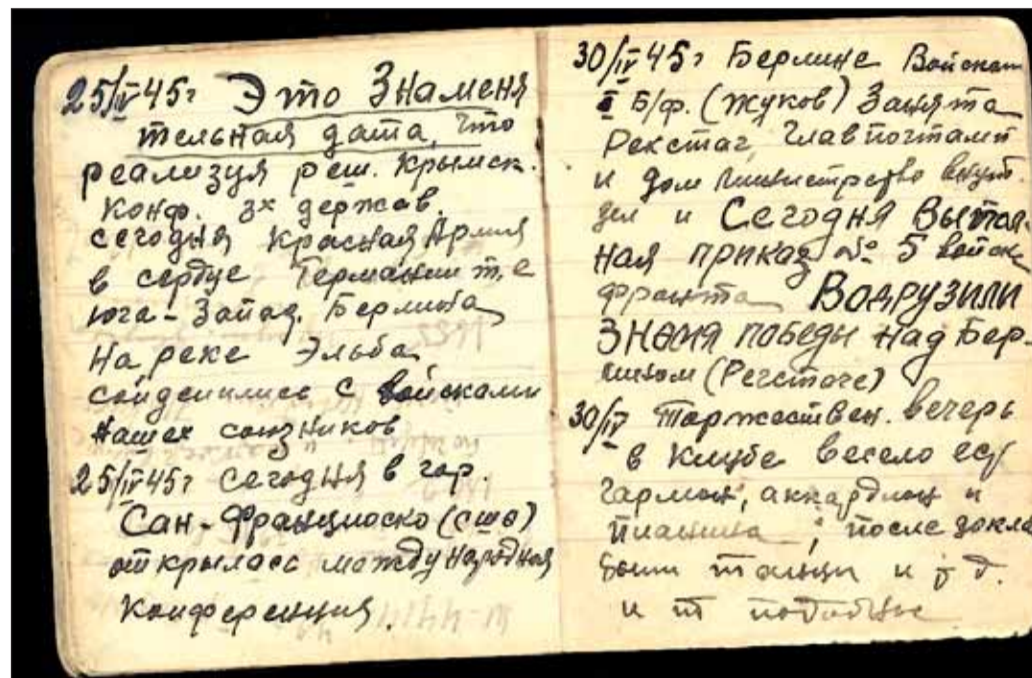 25/IV 45г Это Знаменя
тельная дата, что
реализуя реш. Крымск.
Конф. 3х держав.
сегодня Красная Армия
в сердце Германии т.е
юга-Запад. Берлина
на реке Эльба
сойденилися с войсками
нашех союзников
25/IV 45г сегодня в гор.
Сан-Франциоско (сша)
открылась международная
Конференция.
30/IV 45г Берлине Войскам
I Б/ф. (Жуков) Занята
Рекстаг, Главпочтамт
и дом Министрство внут.
дел и Сегодня
приказ № 5 войск
фронта Водрузили
Знамя победы над Бер-
лином (Регстаге)
30/IV Торжествен. вечерь
в Клубе весело есть
гармон, аккардион и
пианина; после докла
были танцы и т д.
и т подобные